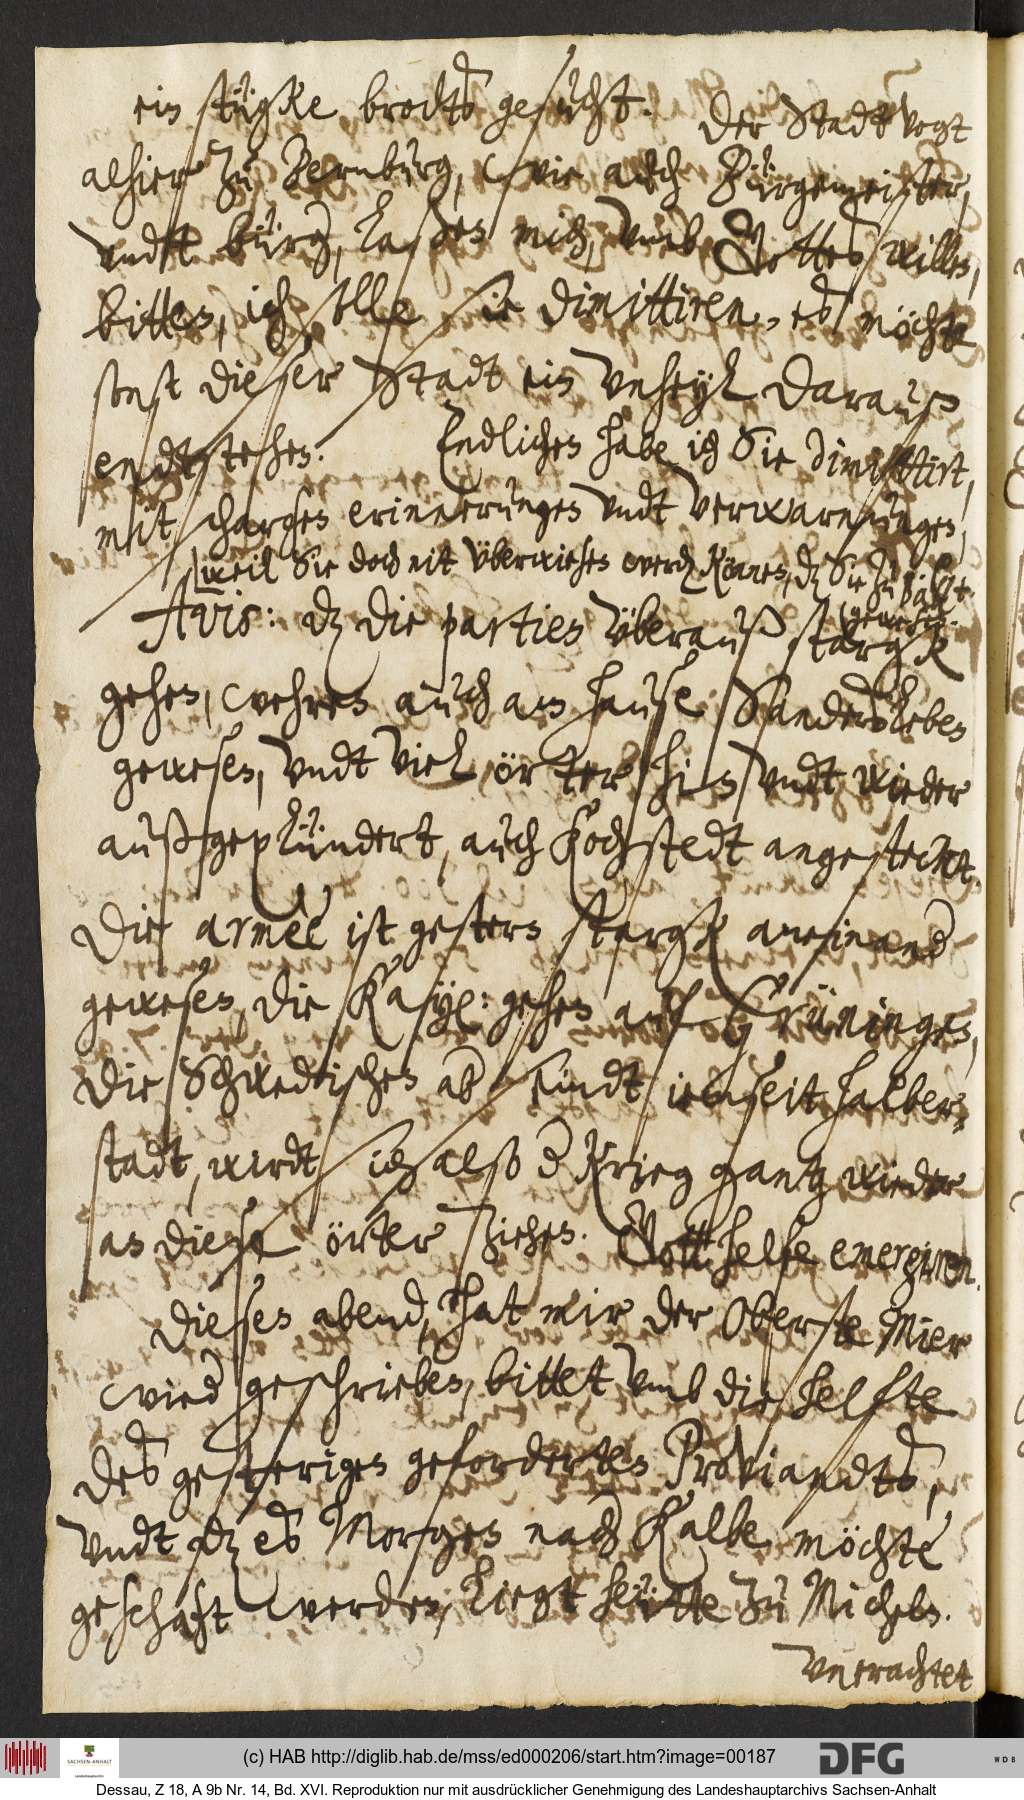 ein stügke brodts gesucht. Der Stadtvogt
alhier zu Bernburg, wie auch Bürgemeister,
undt bürg, laßen mich, umb Gottes willen,
bitten, ich solle sie dimittiren, es möchte
sonst dieser Stadt ein unheyl darauß
endtstehen. Endlichen habe ich Sie dimittirt,
mit scharfen erinnerungen undt verwarnungen,
weil Sie doch nit überwiesen werden können, dz Sie zu
gewesen.
Avis: dz die partien überauß stargk
gehen, wehren auch am hause Sandersleben
gewesen, undt viel örter hin undt wieder
außgeplündert, auch Kochstedt angesteckt.
Die armèe ist gestern stargk aneinand
gewesen, die Kaysl: gehen auf Grüningen,
die Schwedischen ab sindt ienseit halber-
stadt, wirdt sich also d Krieg gantz wieder
an diese örter ziehen. Gott helfe energiren.
Dieses abend, hat mir der Oberste Mier
wied geschrieben, bittet umb die helfte
des gesterigen geforderten Proviandts,
undt dz es Morgen nach Kalbe möchte
geschaft werden, liegt heütte zu Micheln.
Unerachtet
(c) HAB http://diglib.hab.de/mss/ed000206/start.htm?image=00187
SACHSEN-ANHALT
DFG
WDB
Dessau, Z 18, A 9b Nr. 14, Bd. XVI. Reproduktion nur mit ausdrücklicher Genehmigung des Landeshauptarchivs Sachsen-Anhalt